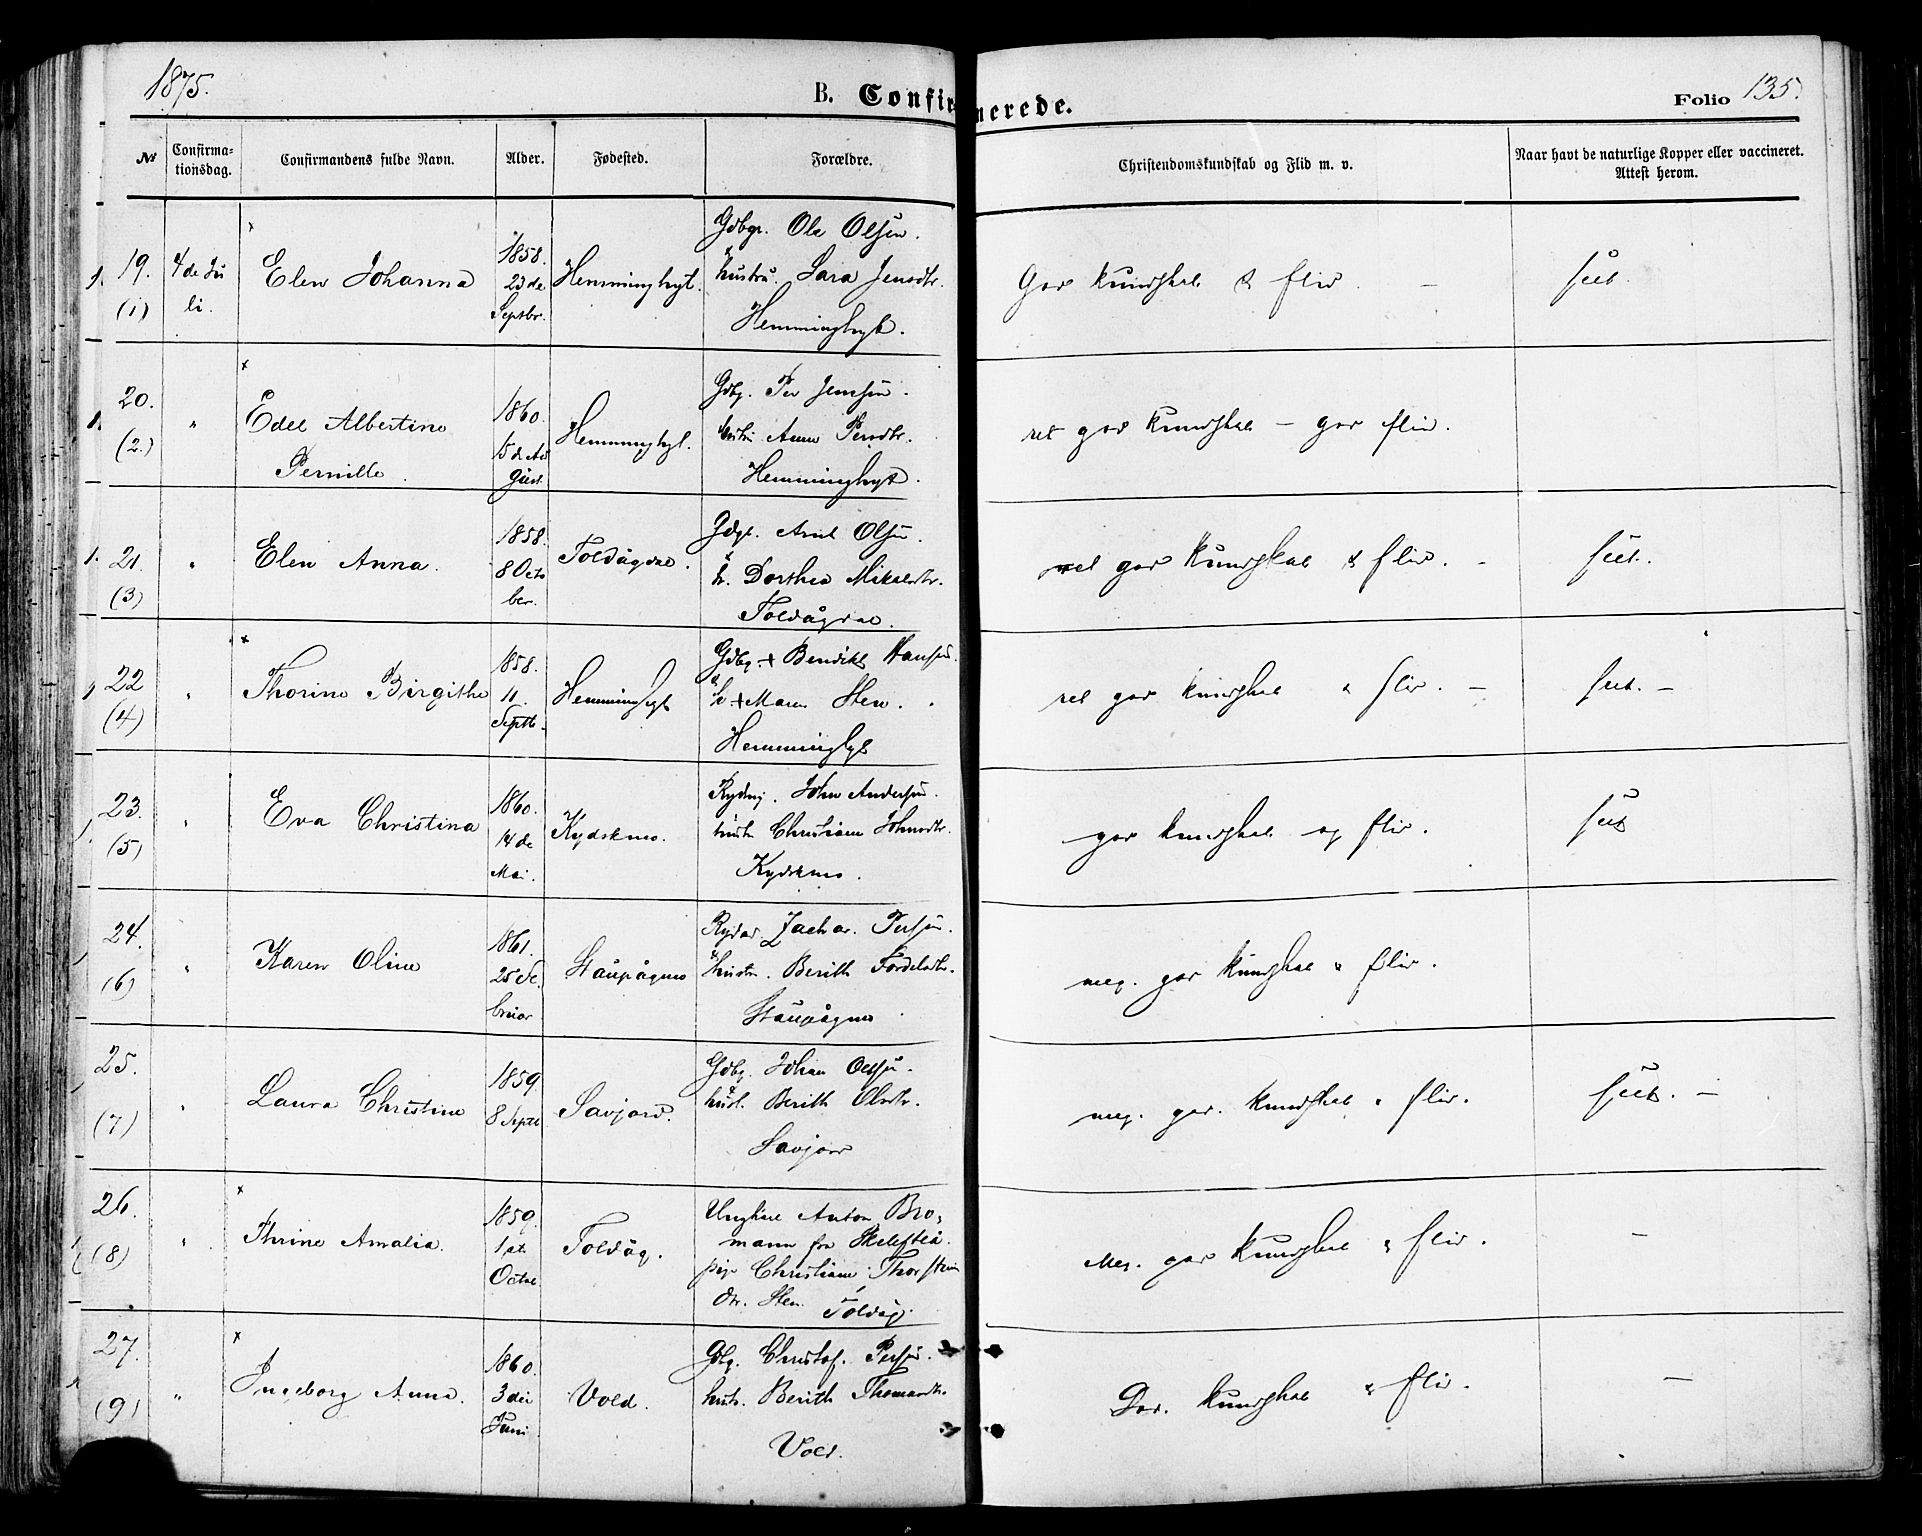 1875.
B. Confirmerede.
Folio 135.
No
Confirma-
tionsdag.
Confirmandens fulde Navn.
Alder.
Fødested.
Forældre.
Christendomskundskab og Flid m. v.
Naar havt de naturlige Kopper eller vaccineret.
Attest herom.
19.
(1)
4de Ju
li.
Elen Johanna
1858.
23de
Septbr.
Hemminghyt.
Gdbgr. Ole Olsen.
& hustru. Sara Jensdtr.
Hemminghyt.
God kundskab & flid.
seet.
20.
(2.)
"
Edel Albertine
Pernille.
1860.
15de Au
gust
Hemminghyt.
Gdbg. Per Jensen.
hustru Anne Persdtr.
Hemminghyt.
ret god kundskab – god flid.
21.
(3)
"
Elen Anna.
1858.
8 Octo
ber.
Toldågdal.
Gdbgr. Arnt Olsen.
& h. Dorthea Mikalsdtr.
Toldågdal.
ret god kundskab & flid. -
seet.
22
(4)
"
Thorine Birgithe
1858.
11.
Septb.
Hemminghyt
Gdbg. + Bendikt Hansen.
& h + Maren Sten.
Hemminghyt
ret god kundskab " flid. –
seet. –
23.
(5)
"
Eva Christina
1860.
14de
Mai.
Kydsknes.
Rydnj. John Andersen.
hustr Christiane Johnsdtr.
Kydsknes.
god kundskab og flid.
seet
24.
(6)
"
Karen Oline
1861.
25 Fe
bruar
Staupågnes
Zachar. Persen.
Hustr. Berith
Staupågnes
meg. god kundskab " flid.
25.
(7)
"
Laura Christine
1859.
8 Septb
Savjord.
Gdbg. Johan Olsen.
hust. Berith Olsdtr.
Savjord
meg. god. kundskab " flid.
seet. –
26.
(8)
"
Thrine Amalia.
1859.
1st.
Octbr
Toldåg.
Ungkarl Anton Bro-
mann fra Skelefteå
pige Christiane Thorstein
dtr. Sten. Toldåg.
Meg. god kundskab " flid.
–
27.
(9)
"
Ingeborg Anna.
1860.
3dei
Juni
Vold.
Gdbg. Christof. Persen.
hust. Berith Thomasdtr.
Vold.
God. kundskab & flid.
–